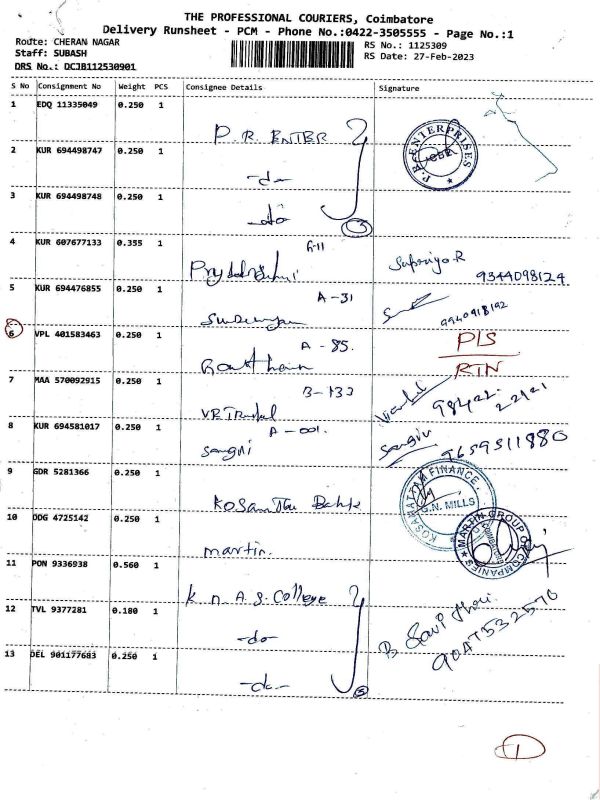 THE PROFESSIONAL COURIERS, Coimbatore
Delivery Runsheet - PCM - Phone No.:0422-3505555 - Page No.:1
Route: CHERAN NAGAR
Staff: SUBASH
DRS No.: DCJB112530901
RS No.: 1125309
RS Date: 27-Feb-2023
S No Consignment No Weight PCS Consignee Details Signature
1 EDQ 11335049 0.250 1 P.R. ENTER
P.R ENTERPRISES CBE
2 KUR 694498747 0.250 1 -do-
3 KUR 694498748 0.250 1 -do- 3
4 KUR 607677133 0.355 1 G-11
9344098124
5 KUR 694476855 0.250 1 A-31
9940918192
6 VPL 401583463 0.250 1 A-85. Gowtham P/S RTN
7 MAA 570092915 0.250 1 B-133
8 KUR 694581017 0.250 1 A-001. 9659511880
9 GDR 5281366 0.250 1
KOSAMATTAM FINANCE, G.N. MILLS
10 DDG 4725142 0.250 1 martin.
MARTIN GROUP OF COMPANIES COIMBATORE
11 PON 9336938 0.560 1 K n A.S. College
12 TVL 9377281 0.180 1 -do-
B Savithri
9047532570
13 DEL 901177683 0.250 1 -do- 3
1